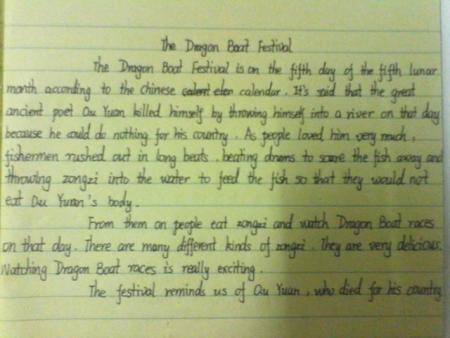 The Dragon Boat Festival
The Dragon Boat Festival is on the fifth day of the fifth lunar
month according to the chinese calendar. It's said that the great
ancient poet Qu Yuan killed himself by throwing himself into a river on that day
because he could do nothing for his country. As people loved him very much,
fishermen rushed out in long boats, beating drums to scare the fish away and
throwing zongzi into the water to feed the fish so that they would not
eat Qu Yuan's body.
From them on people eat zongzi and watch Dragon Boat races
on that day. There are many different kinds of zongzi. They are very delicious.
Watching Dragon Boat races is really exciting.
The festival reminds us of Qu Yuan, who died for his country